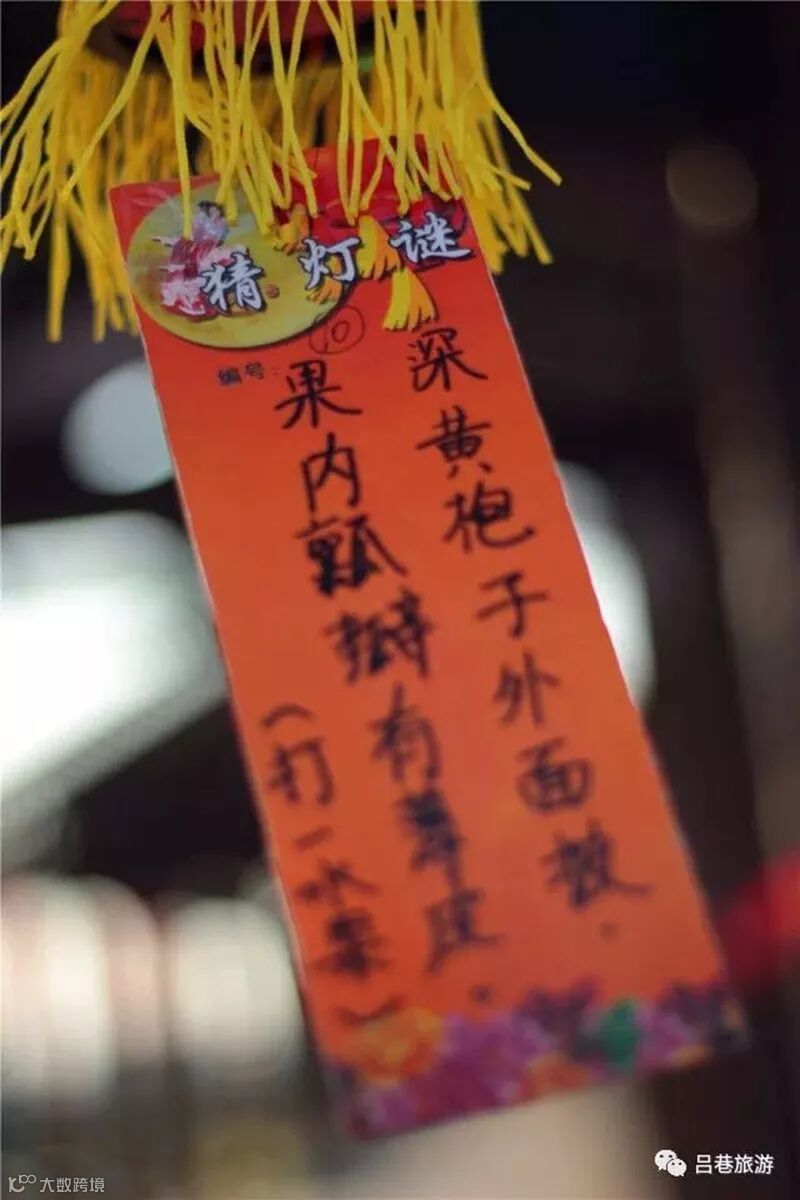 猜灯谜
编号：10
深黄袍子外面披.
果内瓤瓣有薄皮.
（打一水果）
吕巷旅游
大数跨境